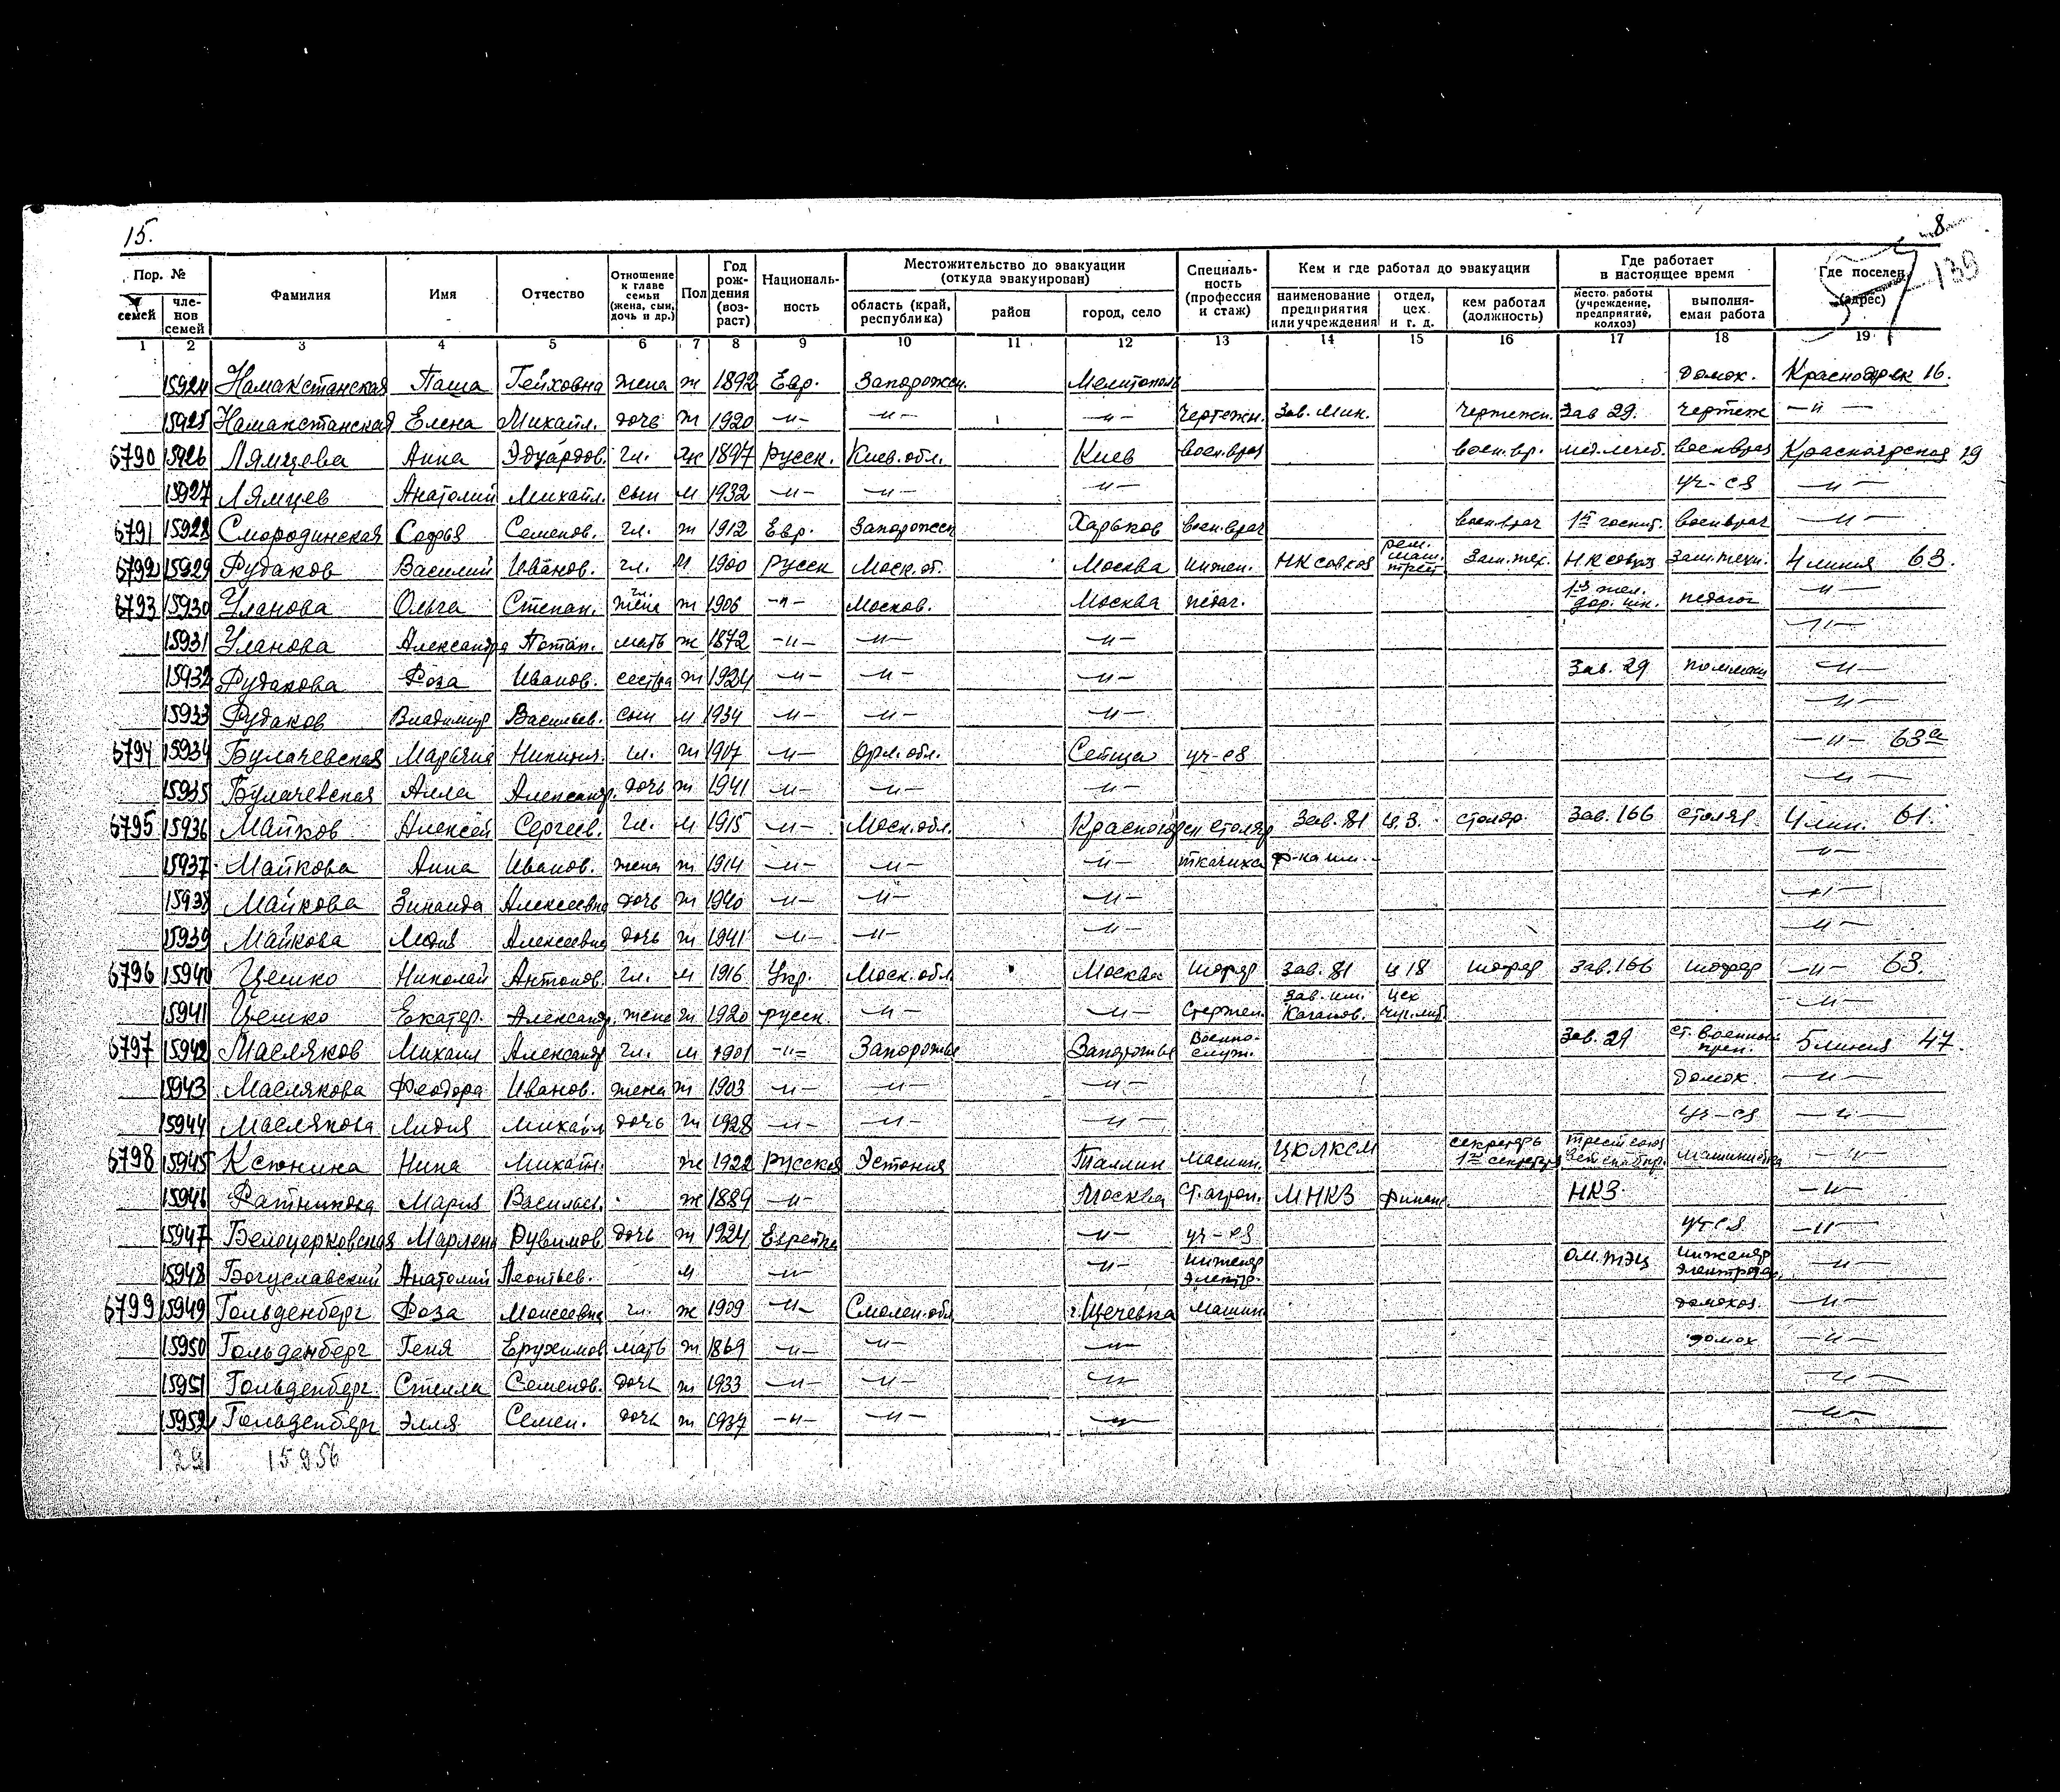 15.
8
139
Пор. № Фамилия Имя Отчество Отношение к главе семьи (жена, сын, дочь и др.) Пол Год рождения (возраст) Националь-ность Местожительство до эвакуации (откуда эвакуирован) Специаль-ность (профессия и стаж) Кем и где работал до эвакуации Где работает в настоящее время Где поселен (адрес)
семей чле-нов семей область (край, республика) район город, село наименование предприятия или учреждения отдел, цех и т. д. кем работал (должность) место работы (учреждение, предприятие, колхоз) выполня-емая работа
1 2 3 4 5 6 7 8 9 10 11 12 13 14 15 16 17 18 19
15924 Намакстанская Паша Гейховна жена ж 1892 Евр. Запорожск. Мелитополь домох. Красноярск 16.
15925 Намакстанская Елена Михайл. дочь ж 1920 -"- -"- -"- чертежн. Зав. Мик. чертежн. Зав 29. чертеж -"-
6790 15926 Лямцева Анна Эдуардов. гл. ж 1897 Русск. Киев. обл. Киев воен. врач воен. вр. воен врач Красноярская 19
15927 Лямцев Анатолий Михайл. сын м 1932 -"- -"- -"- уч-ся -"-
6791 15928 Смородинская Софья Семенов. гл. ж 1912 Евр. Запорожск Харьков воен. врач воен врач 1й госпит. воен врач -"-
6792 15929 Рудаков Василий Иванов. гл. м 1900 Русск Моск. об. Москва инжен. НКсовхоз рем. маш. трест Зам. тех. НКсовхоз Зам. техн. 4 линия 63.
6793 15930 Уланова Ольга Степан. гл. жена ж 1906 -"- Москов. Москва педаг. 1я жел. дор. шк. педагог -"-
15931 Уланова Александра Потап. мать ж 1872 -"- -"- -"- -"-
15932 Рудакова Роза Иванов. сестра ж 1924 -"- -"- -"- Зав. 29 -"-
15933 Рудаков Владимир Васильев. сын м 1934 -"- -"- -"- -"-
6794 15934 Булачевская Марьяна Никитич. гл. ж 1917 -"- Орл. обл. Сеща уч-ся -"- 63а
15935 Булачевская Алла Александр. дочь ж 1941 -"- -"- -"- -"-
6795 15936 Майков Алексей Сергеев. гл. м 1915 -"- Моск. обл. Красногорск столяр Зав. 81 ц. 3. столяр. Зав. 166 столяр 4 лин. 61.
15937 Майкова Анна Иванов. жена ж 1914 -"- -"- -"- ткачиха ф-ка им. -"-
15938 Майкова Зинаида Алексеевна дочь ж 1940 -"- -"- -"- -"-
15939 Майкова Лидия Алексеевна дочь ж 1941 -"- -"- -"- -"-
6796 15940 Цешко Николай Антонов. гл. м 1916 Укр. Моск. обл. Москва шофер Зав. 81 ц 18 шофер Зав. 166 шофер -"- 63.
15941 Цешко Екатер. Александр. жена ж 1920 русск. -"- -"- Стержен. Зав. им. Каганов. цех чуг. лит. -"-
6797 15942 Масляков Михаил Александр гл. м 1901 -"- Запорожье Запорожье Военно-служ. Зав. 29 ст. военный преп. 5 линия 47.
15943 Маслякова Феодора Иванов. жена ж 1903 -"- -"- -"- домох. -"-
15944 Маслякова Лидия Михайл дочь ж 1928 -"- -"- -"- уч-ся -"-
6798 15945 Ксюнина Нина Михайл. ж 1922 Русская Эстония Таллин машин. ЦКЛКСМ секретарь 1го секретаря машинистка -"-
15946 Ратникова Мария Васильев. ж 1889 -"- Москва ст. агрон. МНКЗ финанс НКЗ. -"-
15947 Белоцерковская Марлена Рувимов дочь ж 1924 Еврейка -"- уч-ся уч-ся -"-
15948 Богуславский Анатолий Леонтьев. м -"- -"- инженер электр. ом. ТЭЦ инженер -"-
6799 15949 Гольденберг Роза Моисеевна гл. ж 1909 -"- Смолен. обл г. Щечевка машин. домохоз. -"-
15950 Гольденберг Геня Ерухимов. мать ж 1869 -"- -"- -"- домох -"-
15951 Гольденберг Стелла Семенов. дочь ж 1933 -"- -"- -"- -"-
15952 Гольденберг Элля Семен. дочь ж 1937 -"- -"- -"- -"-
29 15956